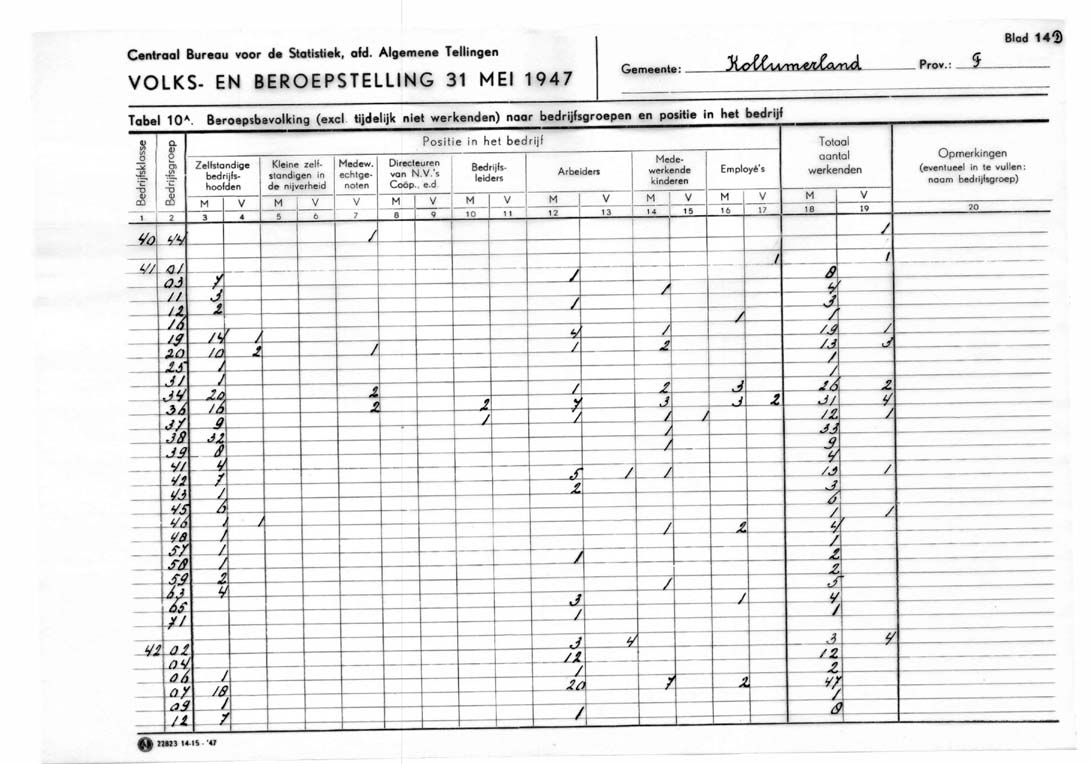 Blad 14D
Centraal Bureau voor de Statistiek, afd. Algemene Tellingen
VOLKS- EN BEROEPSTELLING 31 MEI 1947
Gemeente: Kollumerland Prov.: F
Tabel 10A. Beroepsbevolking (excl. tijdelijk niet werkenden) naar bedrijfsgroepen en positie in het bedrijf
Bedrijfsklasse
Bedrijfsgroep
Positie in het bedrijf
Zelfstandige
bedrijfs-
hoofden
Kleine zelf-
standigen in
de nijverheid
Medew.
echtge-
noten
Directeuren
van N.V.'s
Coöp., e.d.
Bedrijfs-
leiders
Arbeiders
Mede-
werkende
kinderen
Employé's
Totaal
aantal
werkenden
Opmerkingen
(eventueel in te vullen:
naam bedrijfsgroep)
M V M V V M V M V M V M V M V M V
1 2 3 4 5 6 7 8 9 10 11 12 13 14 15 16 17 18 19 20
40 44 1 1
41 01 1 1
03 7 1 8
11 3 1 4
12 2 1 3
16 1 1
19 14 1 4 1 19 1
20 10 2 1 1 2 13 3
25 1 1
31 1 1
34 20 2 1 2 3 26 2
36 16 2 2 7 3 3 2 31 4
37 9 1 1 1 1 12 1
38 32 1 33
39 8 1 9
41 4 4
42 7 5 1 1 13 1
43 1 2 3
45 6 6
46 1 1 1 1
48 1 1 2 4
57 1 1
58 1 1 2
59 2 2
63 4 1 5
65 3 1 4
71 1 1
42 02 3 4 3 4
04 12 12
06 1 1 2
07 18 20 7 2 47
09 1 1
12 7 1 8
22823 14-15 - '47